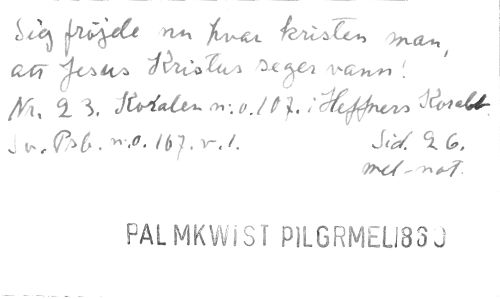 Sig fröjde nu hvar kristen man,
att Jesus Kristus seger vann!
Nr. 23. Koralen n:o. 107. i Heffners Koralb.
Sv. Psb. n:o. 107. v. 1. Sid. 26.
mel-not.
PALMKWIST PILGRMEL1860